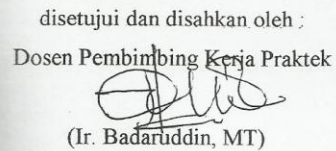 disetujui dan disahkan oleh :
Dosen Pembimbing Kerja Praktek
(Ir. Badaruddin, MT)